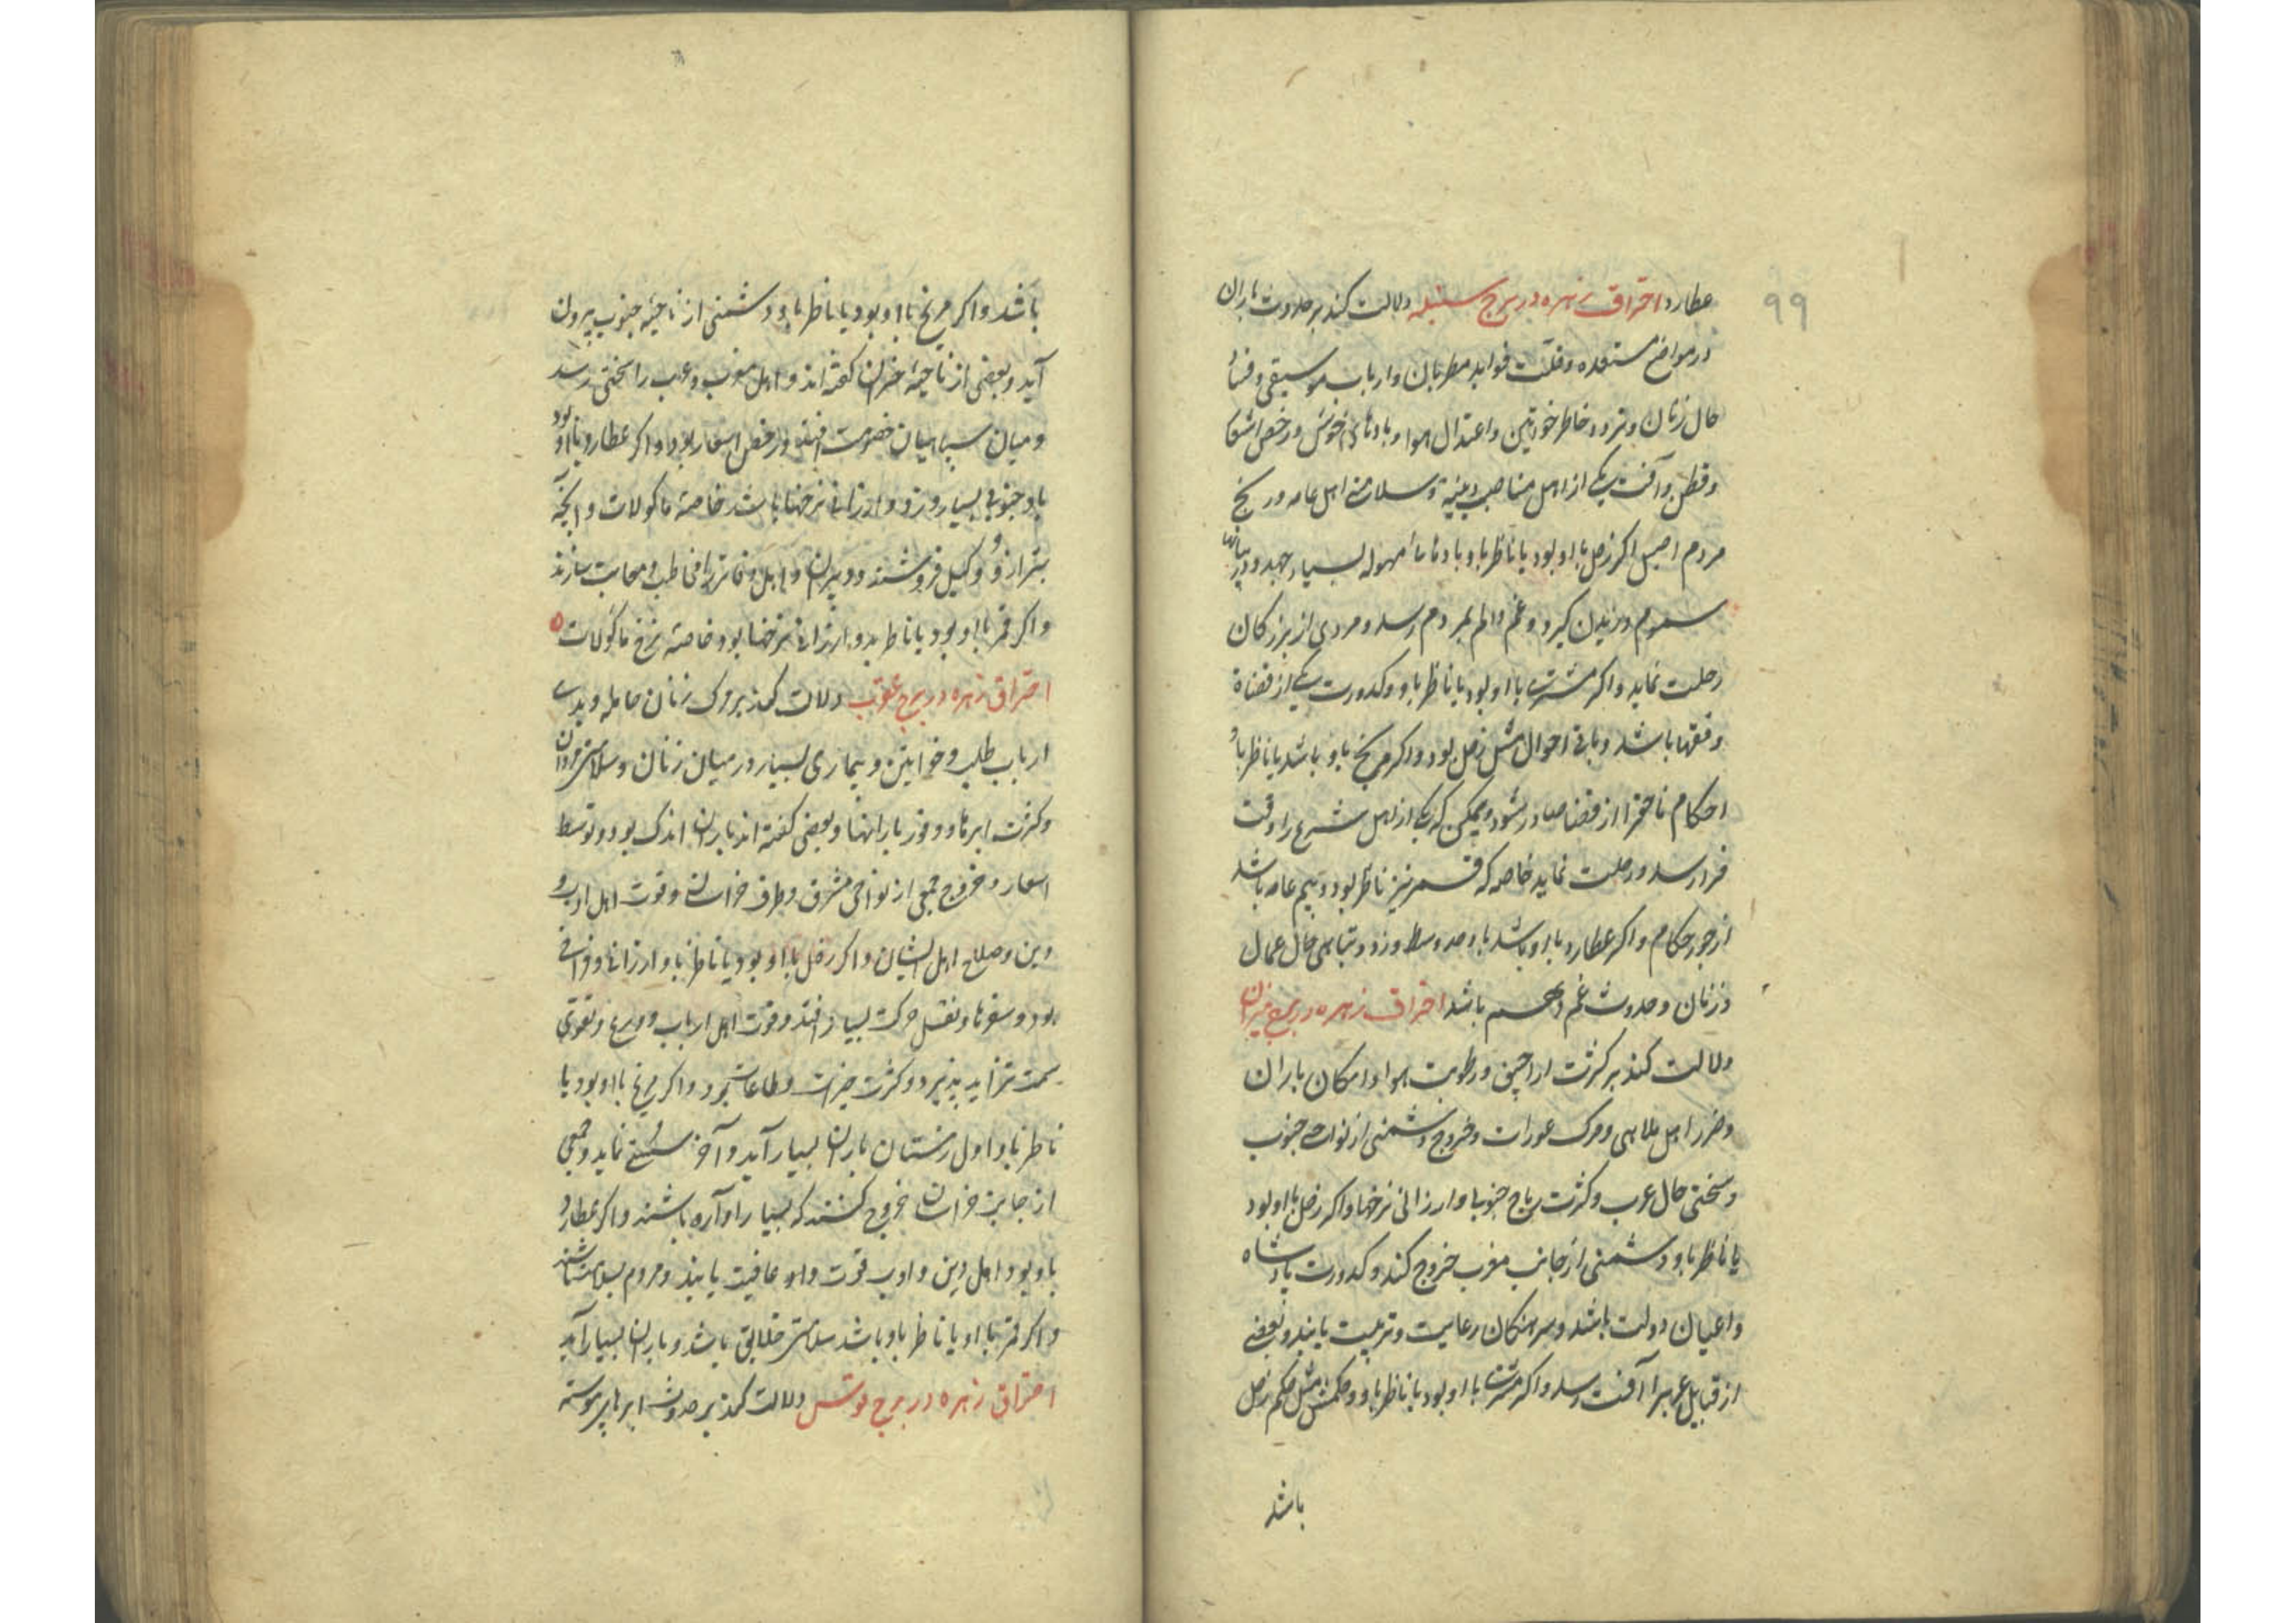 ۹۹
عطارد احتراق زهره در برج سنبله دلالت کند بر حدوث باران
در مواضع مستعده و قلّت فواید مطربان و ارباب موسیقی و فساد
حال زنان و تردد خاطر خواتین و اعتدال هوا و بادهای خوش و رخص اشیا
و قطن و آفت یکی از اهل مناصب دینیه و سلامتی اهل عامه و رنج
مردم اصیل اگر زحل با او بود یا ناظر باو بادهاء مهوله بسیار جهد و در بیابانها
سموم وزیدن گیرد و غم و الم بمردم رسد و مردی از بزرگان
رحلت نماید و اگر مشتری با او بود یا ناظر باو کدورت یکی از قضاة
و فقها باشد و باقی احوال مثل زحل بود و اگر مریخ باو باشد یا ناظر باو
احکام ناحق از قضا صادر شود و ممکن که یکی از اهل شرع را وقت
فرا رسد و رحلت نماید خاصه که قمر نیز ناظر بود و بیم عامه باشد
از جور حکام و اگر عطارد با او باشد باد حد وسط وزد و تباهی حال عمال
و زنان و حدوث غم و هم باشد احتراق زهره در برج میزان
دلالت کند بر کثرت اراجیف و رطوبت هوا و امکان باران
و ضرر اهل ملاهی و مرک عورات و خروج دشمنی از نواحی جنوب
و سختی حال عرب و کثرت ریاح جنوبا و ارزانی نرخها و اگر زحل با او بود
یا ناظر باو دشمنی از جانب مغرب خروج کند و کدورت پادشاه
و اعیان دولت باشد و سرهنکان رعایت و تربیت یابند و بعضی
از قبایل عرب را آفت رسد و اگر مشتری با او بود یا ناظر باو حکمش مثل حکم زحل
باشد
باشد و اگر مریخ با او بود یا ناظر باو دشمنی از ناحیهٔ جنوب بیرون
آید و بعضی از ناحیهٔ خراسان گفته اند و اهل مغرب و عرب را سختی رسد
و میان سپاهیان خصومت افتد و رخص اسعار بود و اگر عطارد با او بود
باد جنوبی بسیار وزد و ارزانی نرخها باشد خاصة ماکولات و آنچه
بترازو و کیل فروشند و دبیران و اهل دفاتر را مخاطب و معاتب سازند
و اگر قمر با او بود یا ناظر بدو ارزانی نرخها بود خاصة نرخ ماکولات ه
احتراق زهره در برج عقرب دلالت کند بر مرک زنان حامله و بدی
ارباب طلب و خواتین و بیماری بسیار در میان زنان و سلامتی مردان
و کثرت ابرها و وفور بارانها و بعضی گفته اند باران اندک بود و توسط
اسعار و خروج جمعی از نواحی مشرق و طرف خراسان و قوت اهل ادب و
دین و صلاح اهل ایشان و اگر زحل با او بود یا ناظر باو ارزانی و فراخی
بود و سفرها و نقل حرکت بسیار افتد و قوت اهل ارباب و ورع و تقوی
سمت تزاید پذیرد و کثرت خیرات و طاعات بود و اگر مریخ با او بود یا
ناظر باو اول زمستان باران بسیار آید و آخر سستی نماید و جمعی
از جانب خراسان خروج کنند که بسیار آواره باشند و اگر عطارد
باو بود اهل دین و ادب قوت و عافیت یابند و مردم بسلامت باشند
و اگر قمر با او یا ناظر باو باشد سلامتی خلایق باشد و باران بسیار آید
احتراق زهره در برج قوس دلالت کند بر حدوث ابرها پیوسته